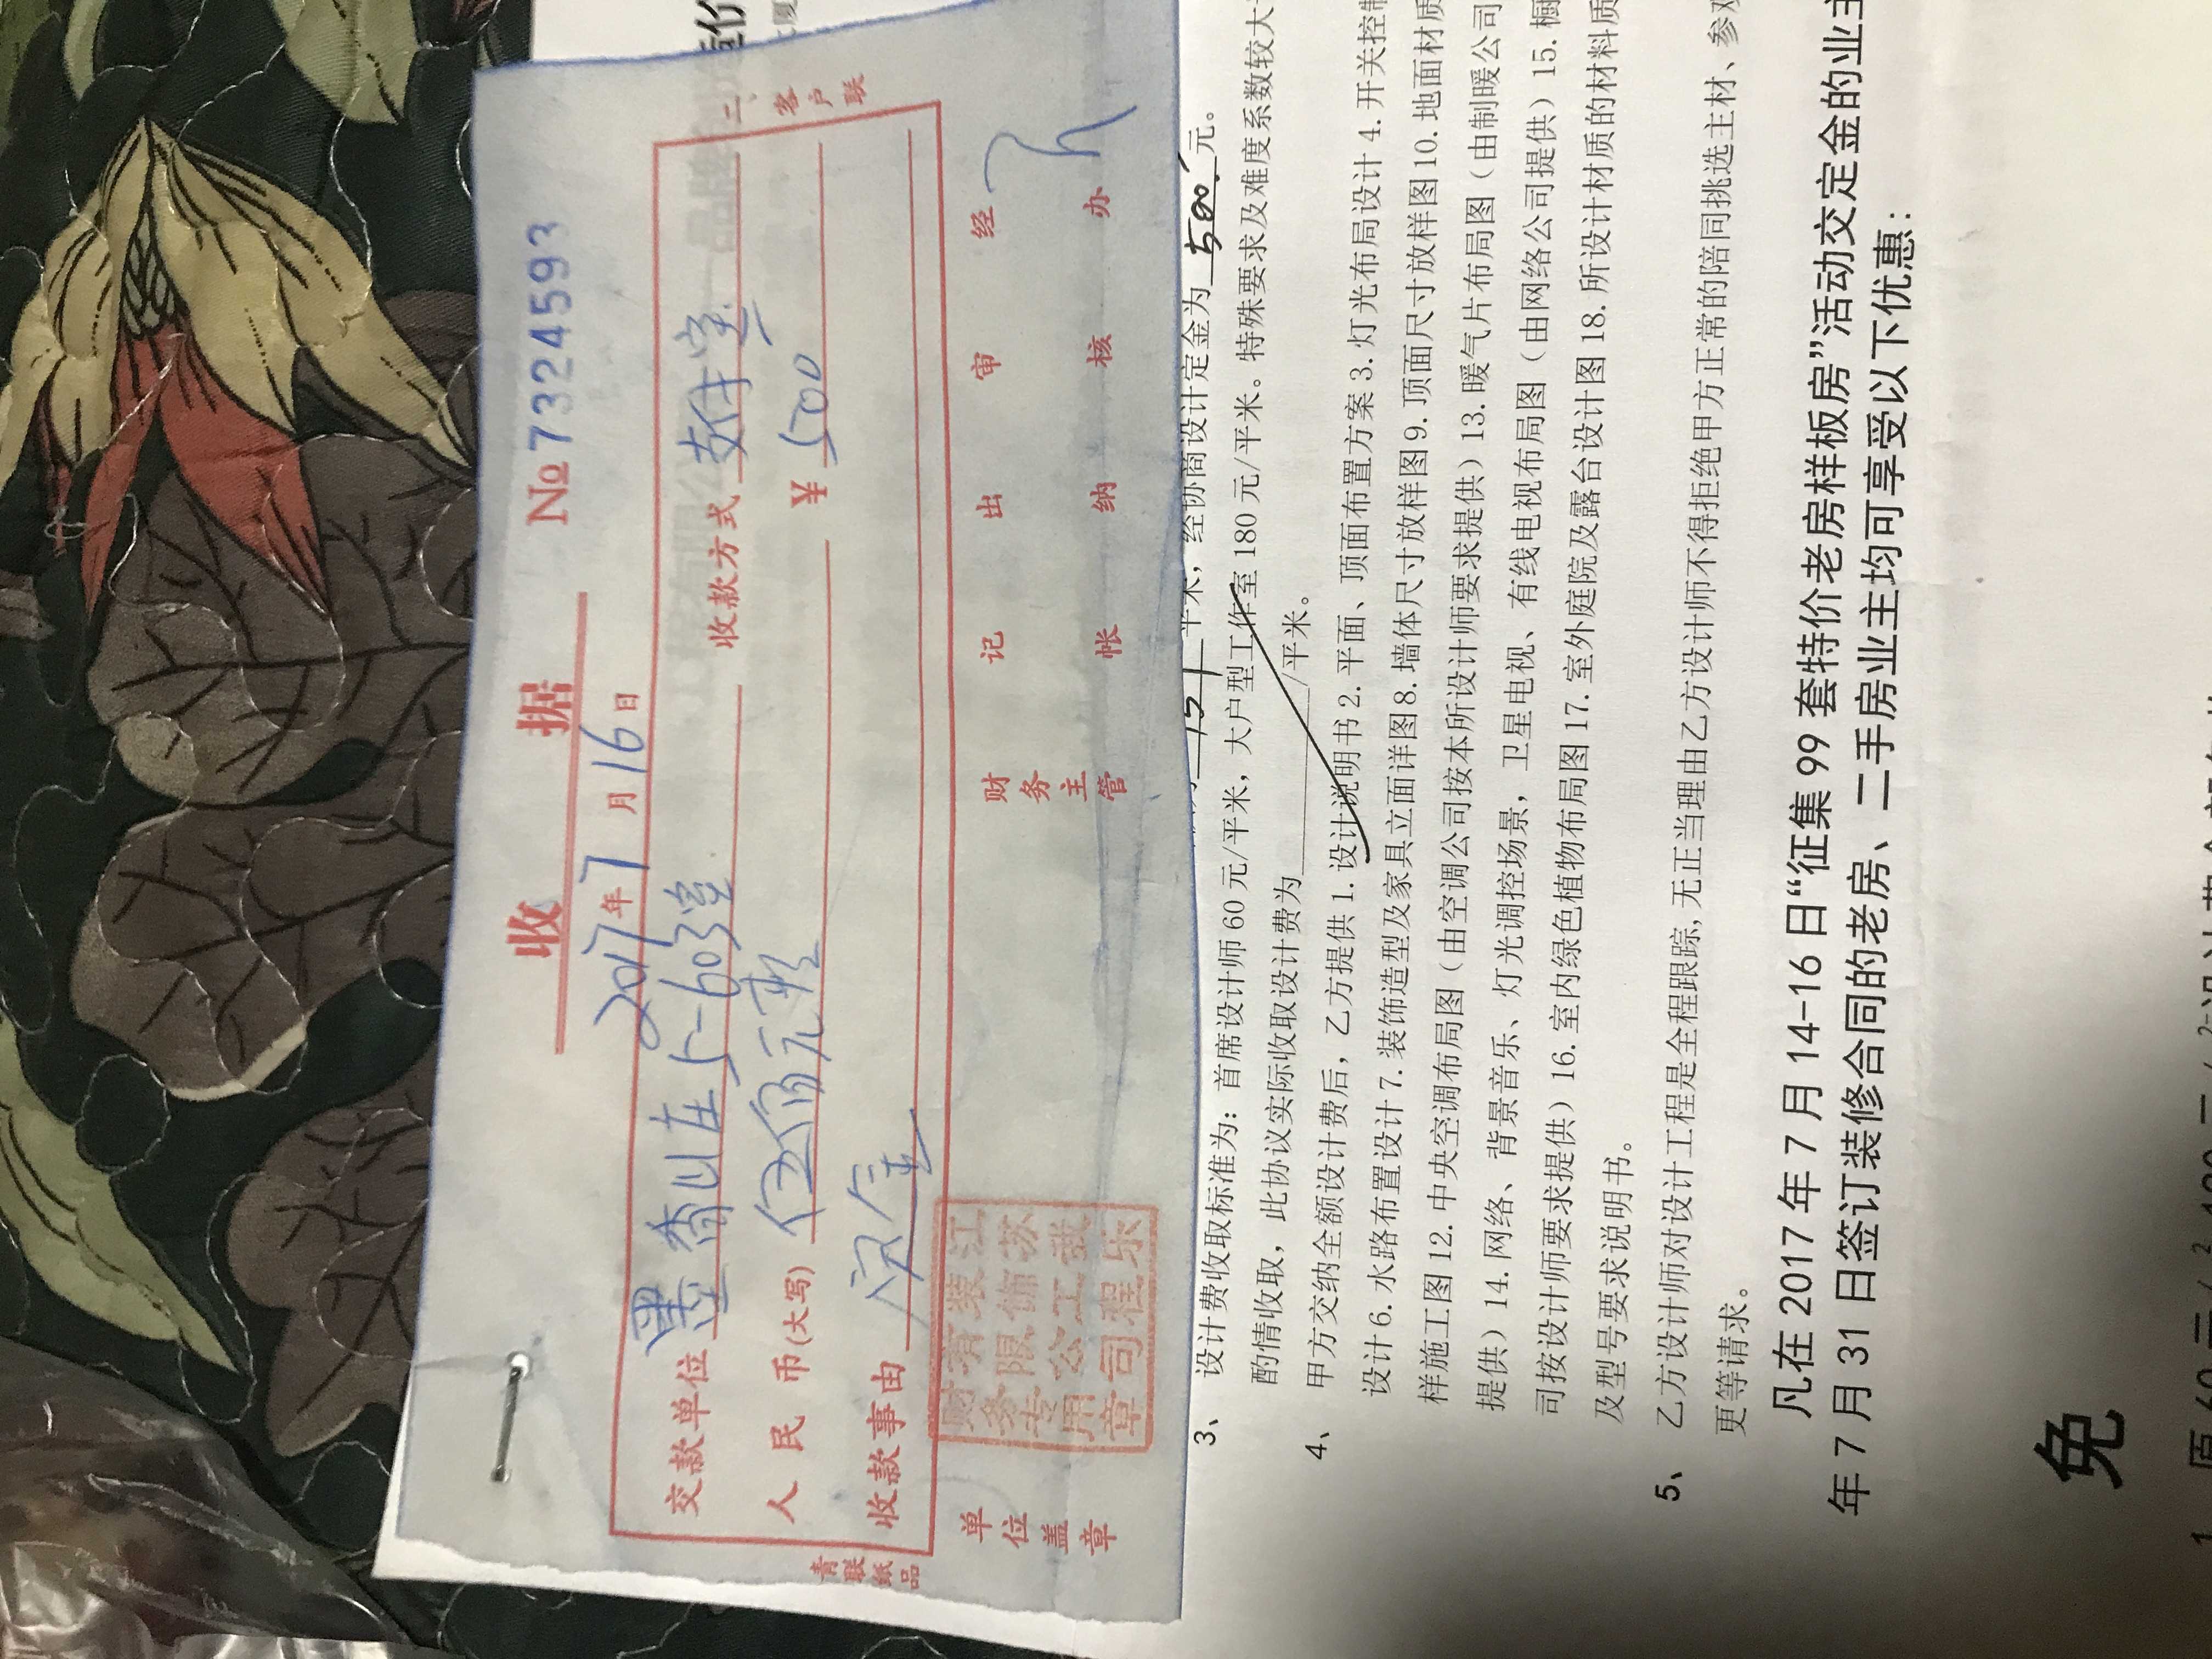 收 据
№73245993
2017年7月16日
交款单位 墨香山庄5-603室
收款方式 支付宝
人民币(大写) 伍佰元整
¥ 500
收款事由 定金
二、客户联
青联纸品
单位盖章
财务主管
记帐
出纳
审核
经办
江苏 装饰工程有限公司
财务专用章
平米，经协商设计定金为 500 元。
3、设计费收取标准为：首席设计师 60 元/平米，大户型工作室 180 元/平米。特殊要求及难度系数较大
酌情收取，此协议实际收取设计费为 /平米。
4、甲方交纳全额设计费后，乙方提供 1. 设计说明书 2. 平面、顶面布置方案 3. 灯光布局设计 4. 开关控制
设计 6. 水路布置设计 7. 装饰造型及家具立面详图 8. 墙体尺寸放样图 9. 顶面尺寸放样图 10. 地面材质
样施工图 12. 中央空调布局图（由空调公司按本所设计师要求提供）13. 暖气片布局图（由制暖公司
提供）14. 网络、背景音乐、灯光调控场景，卫星电视、有线电视布局图（由网络公司提供）15. 橱
司按设计师要求提供）16. 室内绿色植物布局图 17. 室外庭院及露台设计图 18. 所设计材质的材料质
及型号要求说明书。
5、乙方设计师对设计工程是全程跟踪,无正当理由乙方设计师不得拒绝甲方正常的陪同挑选主材、参观
更等请求。
凡在 2017 年 7 月 14-16 日“征集 99 套特价老房样板房”活动交定金的业主
年 7 月 31 日签订装修合同的老房、二手房业主均可享受以下优惠：
免